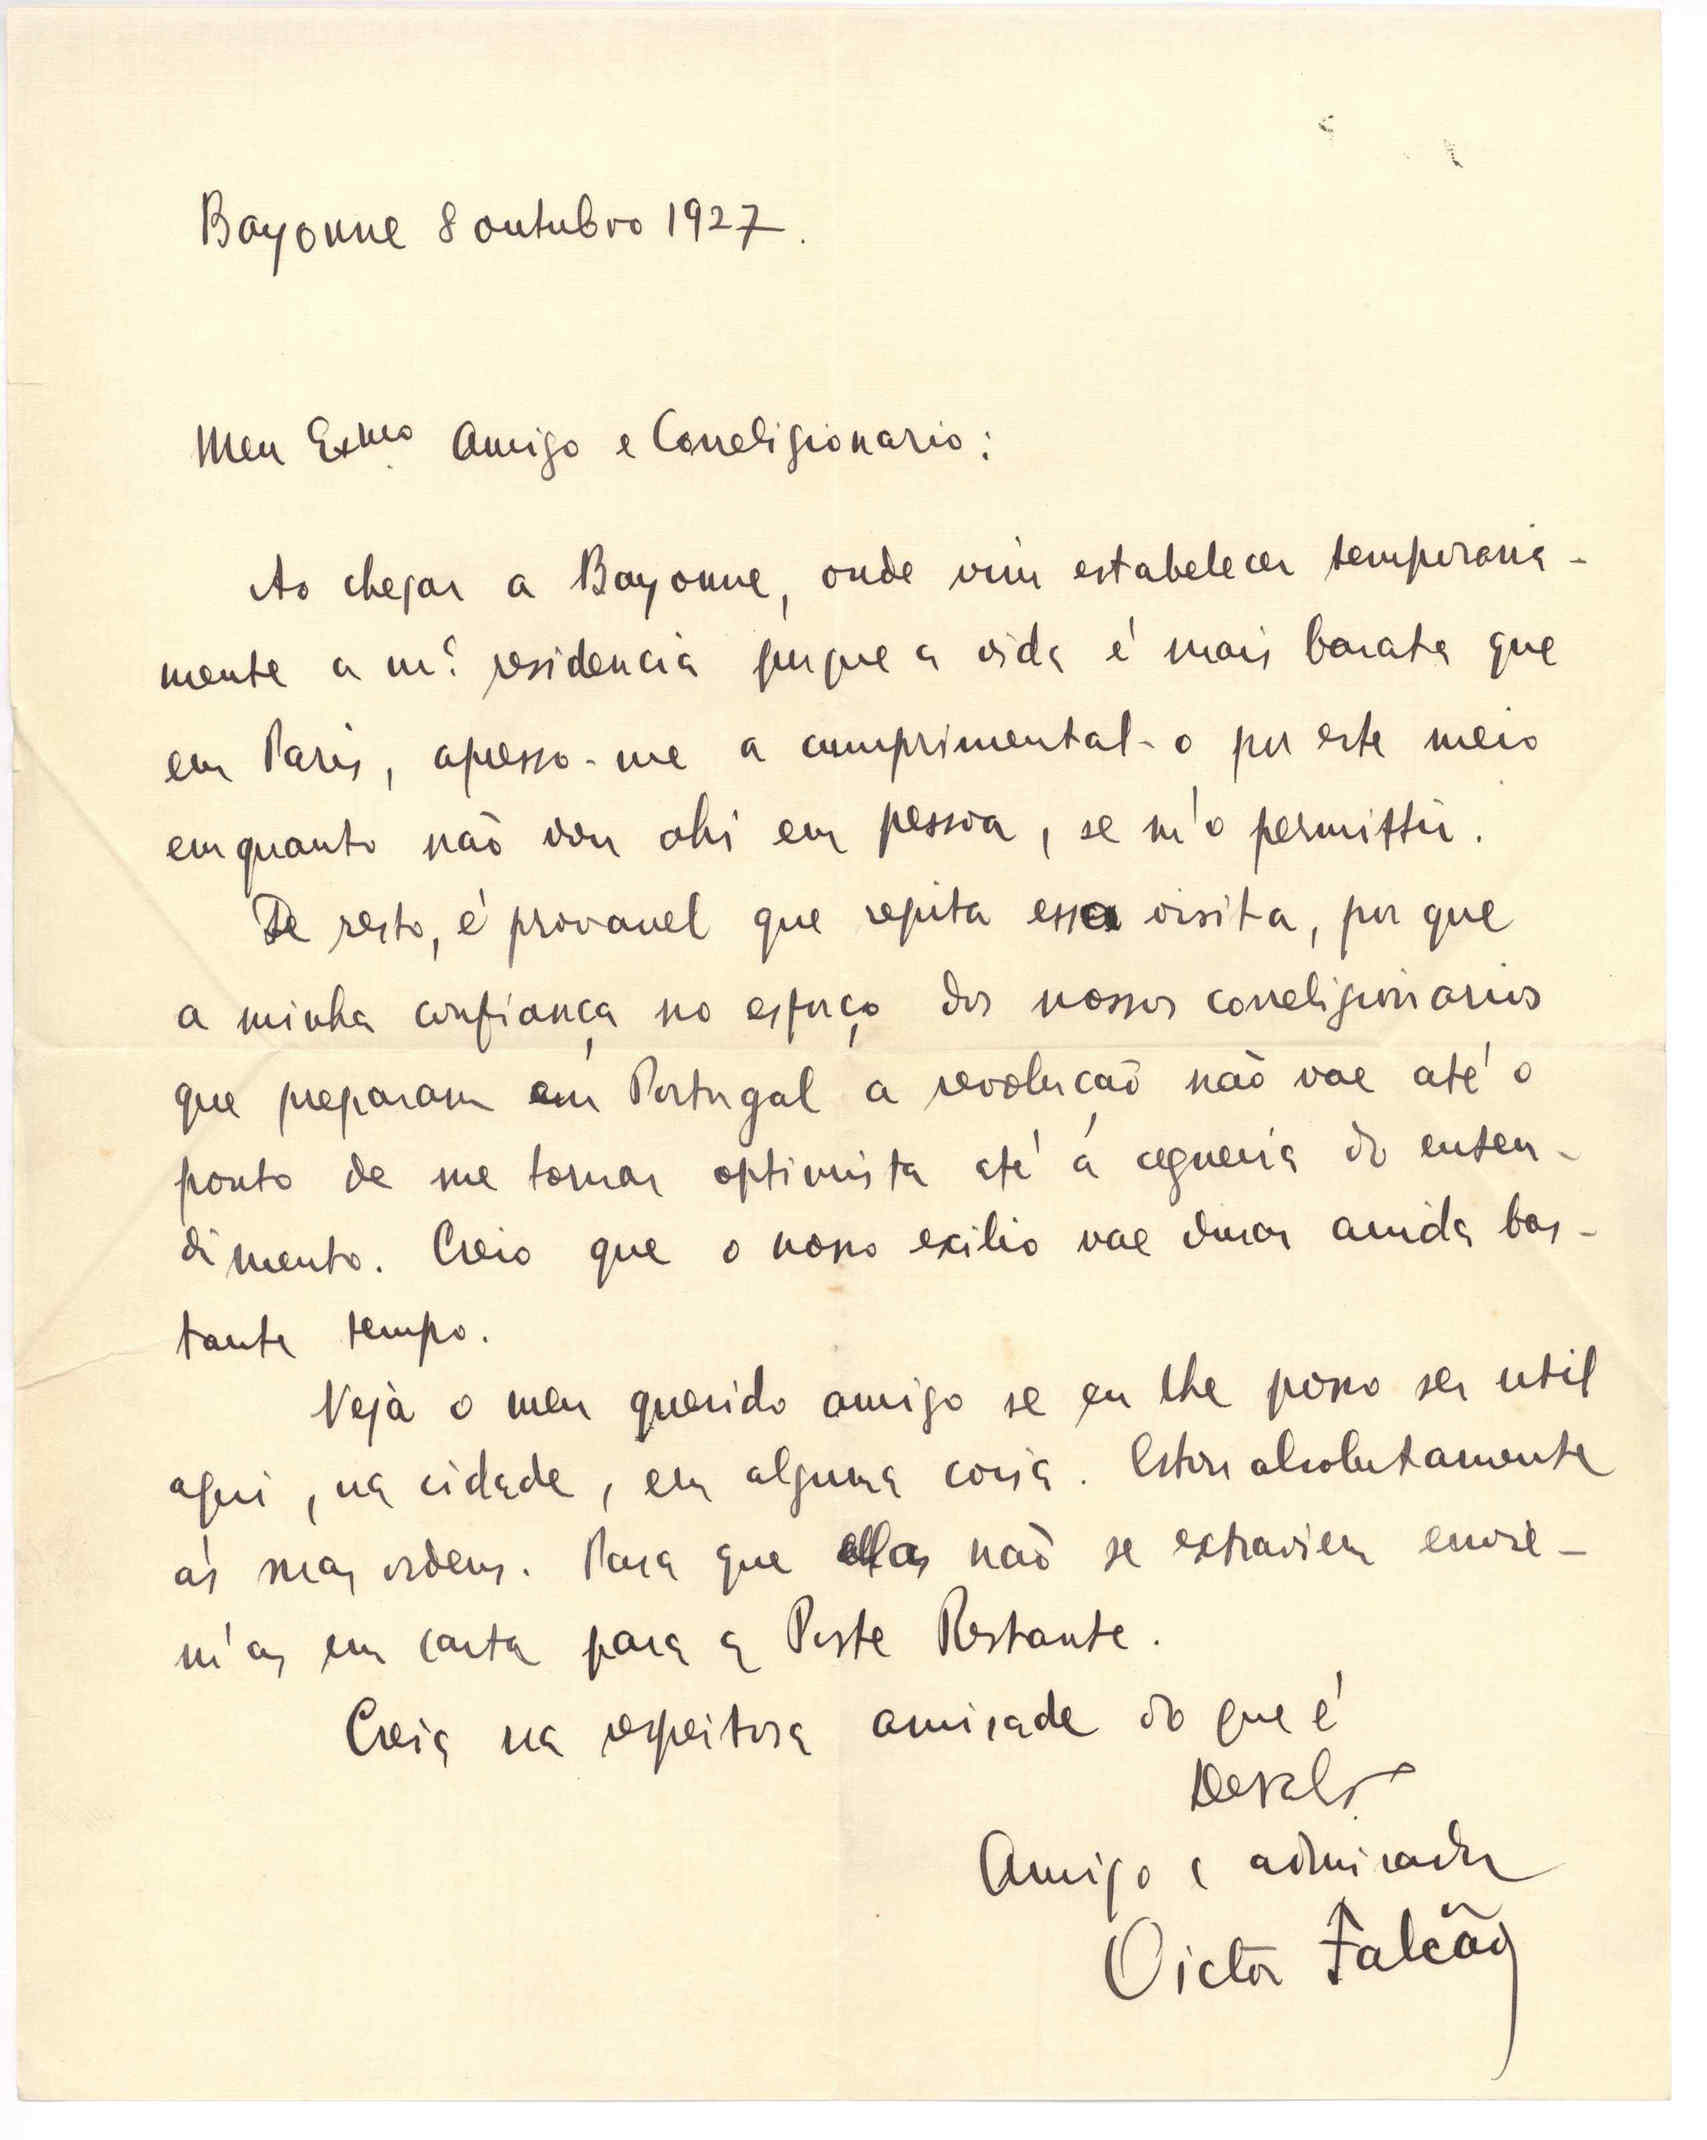 Bayonne 8 outubro 1927.
Meu Exmo Amigo e Correligionario:
Ao chegar a Bayonne, onde vim estabelecer temporaria-
mente a m.ª residencia porque a vida é mais barata que
em Paris, apresso-me a cumprimental-o por este meio
emquanto não vou ahi em pessoa, se m'o permittir.
De resto, é provavel que repita essa visita, por que
a minha confiança no esforço dos nossos correligionarios
que preparam em Portugal a revolução não vae até o
ponto de me tornar optimista até á cegueira do enten-
dimento. Creio que o nosso exilio vae durar ainda bas-
tante tempo.
Veja o meu querido amigo se eu lhe posso ser util
aqui, na cidade, em alguma coisa. Estou absolutamente
ás suas ordens. Para que ellas não se extraviem envie-
m'as em carta para a Poste Restante.
Creia na respeitosa amisade do que é
Amigo e admirador
Victor Falcão